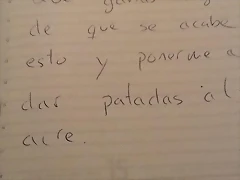 ganas
de que se acabe
esto y ponerme a
dar patadas al
aire.